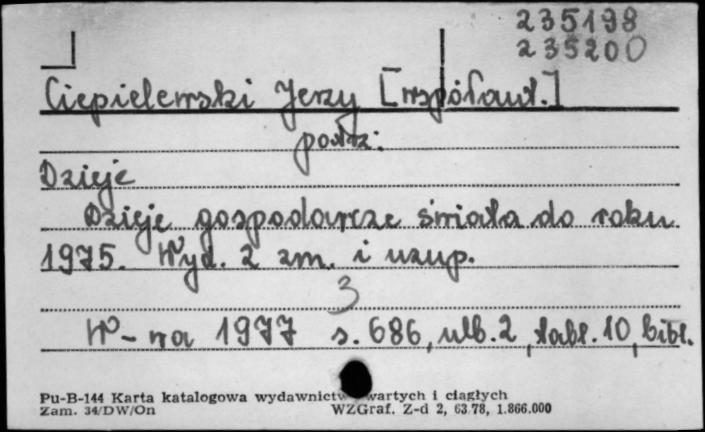 235198
235200
Ciepielewski Jerzy [współaut.]
patrz:
Dzieje
Dzieje gospodarcze świata do roku
1975. Wyd. 2 zm. i uzup.
3
W-wa 1977 s. 686, nlb. 2, tabl. 10, bibl.
Pu-B-144 Karta katalogowa wydawnictw zwartych i ciągłych
Zam. 34/DW/On WZGraf. Z-d 2, 63.78, 1.866.000